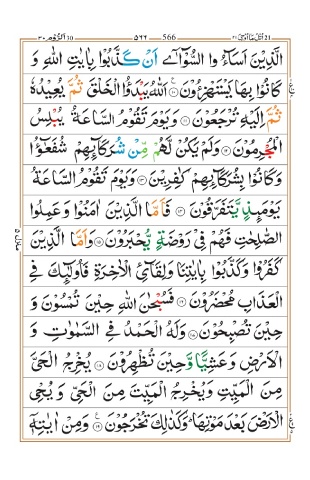 الَّذِيْنَ اَسَآءُوا السُّوْٓاٰۤى اَنْ كَذَّبُوْا بِاٰيٰتِ اللّٰهِ وَ
كَانُوْا بِهَا يَسْتَهْزِءُوْنَ ۝۱۰ اَللّٰهُ يَبْدَؤُا الْخَلْقَ ثُمَّ يُعِيْدُهٗ
ثُمَّ اِلَيْهِ تُرْجَعُوْنَ ۝۱۱ وَيَوْمَ تَقُوْمُ السَّاعَةُ يُبْلِسُ
الْمُجْرِمُوْنَ ۝۱۲ وَلَمْ يَكُنْ لَّهُمْ مِّنْ شُرَكَآئِهِمْ شُفَعٰٓؤُا
وَكَانُوْا بِشُرَكَآئِهِمْ كٰفِرِيْنَ ۝۱۳ وَيَوْمَ تَقُوْمُ السَّاعَةُ
يَوْمَئِذٍ يَّتَفَرَّقُوْنَ ۝۱۴ فَاَمَّا الَّذِيْنَ اٰمَنُوْا وَعَمِلُوا
الصّٰلِحٰتِ فَهُمْ فِيْ رَوْضَةٍ يُّحْبَرُوْنَ ۝۱۵ وَاَمَّا الَّذِيْنَ
كَفَرُوْا وَكَذَّبُوْا بِاٰيٰتِنَا وَلِقَآئِ الْاٰخِرَةِ فَاُولٰٓئِكَ فِي
الْعَذَابِ مُحْضَرُوْنَ ۝۱۶ فَسُبْحٰنَ اللّٰهِ حِيْنَ تُمْسُوْنَ وَ
حِيْنَ تُصْبِحُوْنَ ۝۱۷ وَلَهُ الْحَمْدُ فِي السَّمٰوٰتِ وَ
الْاَرْضِ وَعَشِيًّا وَّحِيْنَ تُظْهِرُوْنَ ۝۱۸ يُخْرِجُ الْحَيَّ
مِنَ الْمَيِّتِ وَيُخْرِجُ الْمَيِّتَ مِنَ الْحَيِّ وَ يُحْيِ
الْاَرْضَ بَعْدَ مَوْتِهَا ؕ وَكَذٰلِكَ تُخْرَجُوْنَ ۝۱۹ وَمِنْ اٰيٰتِهٖٓ